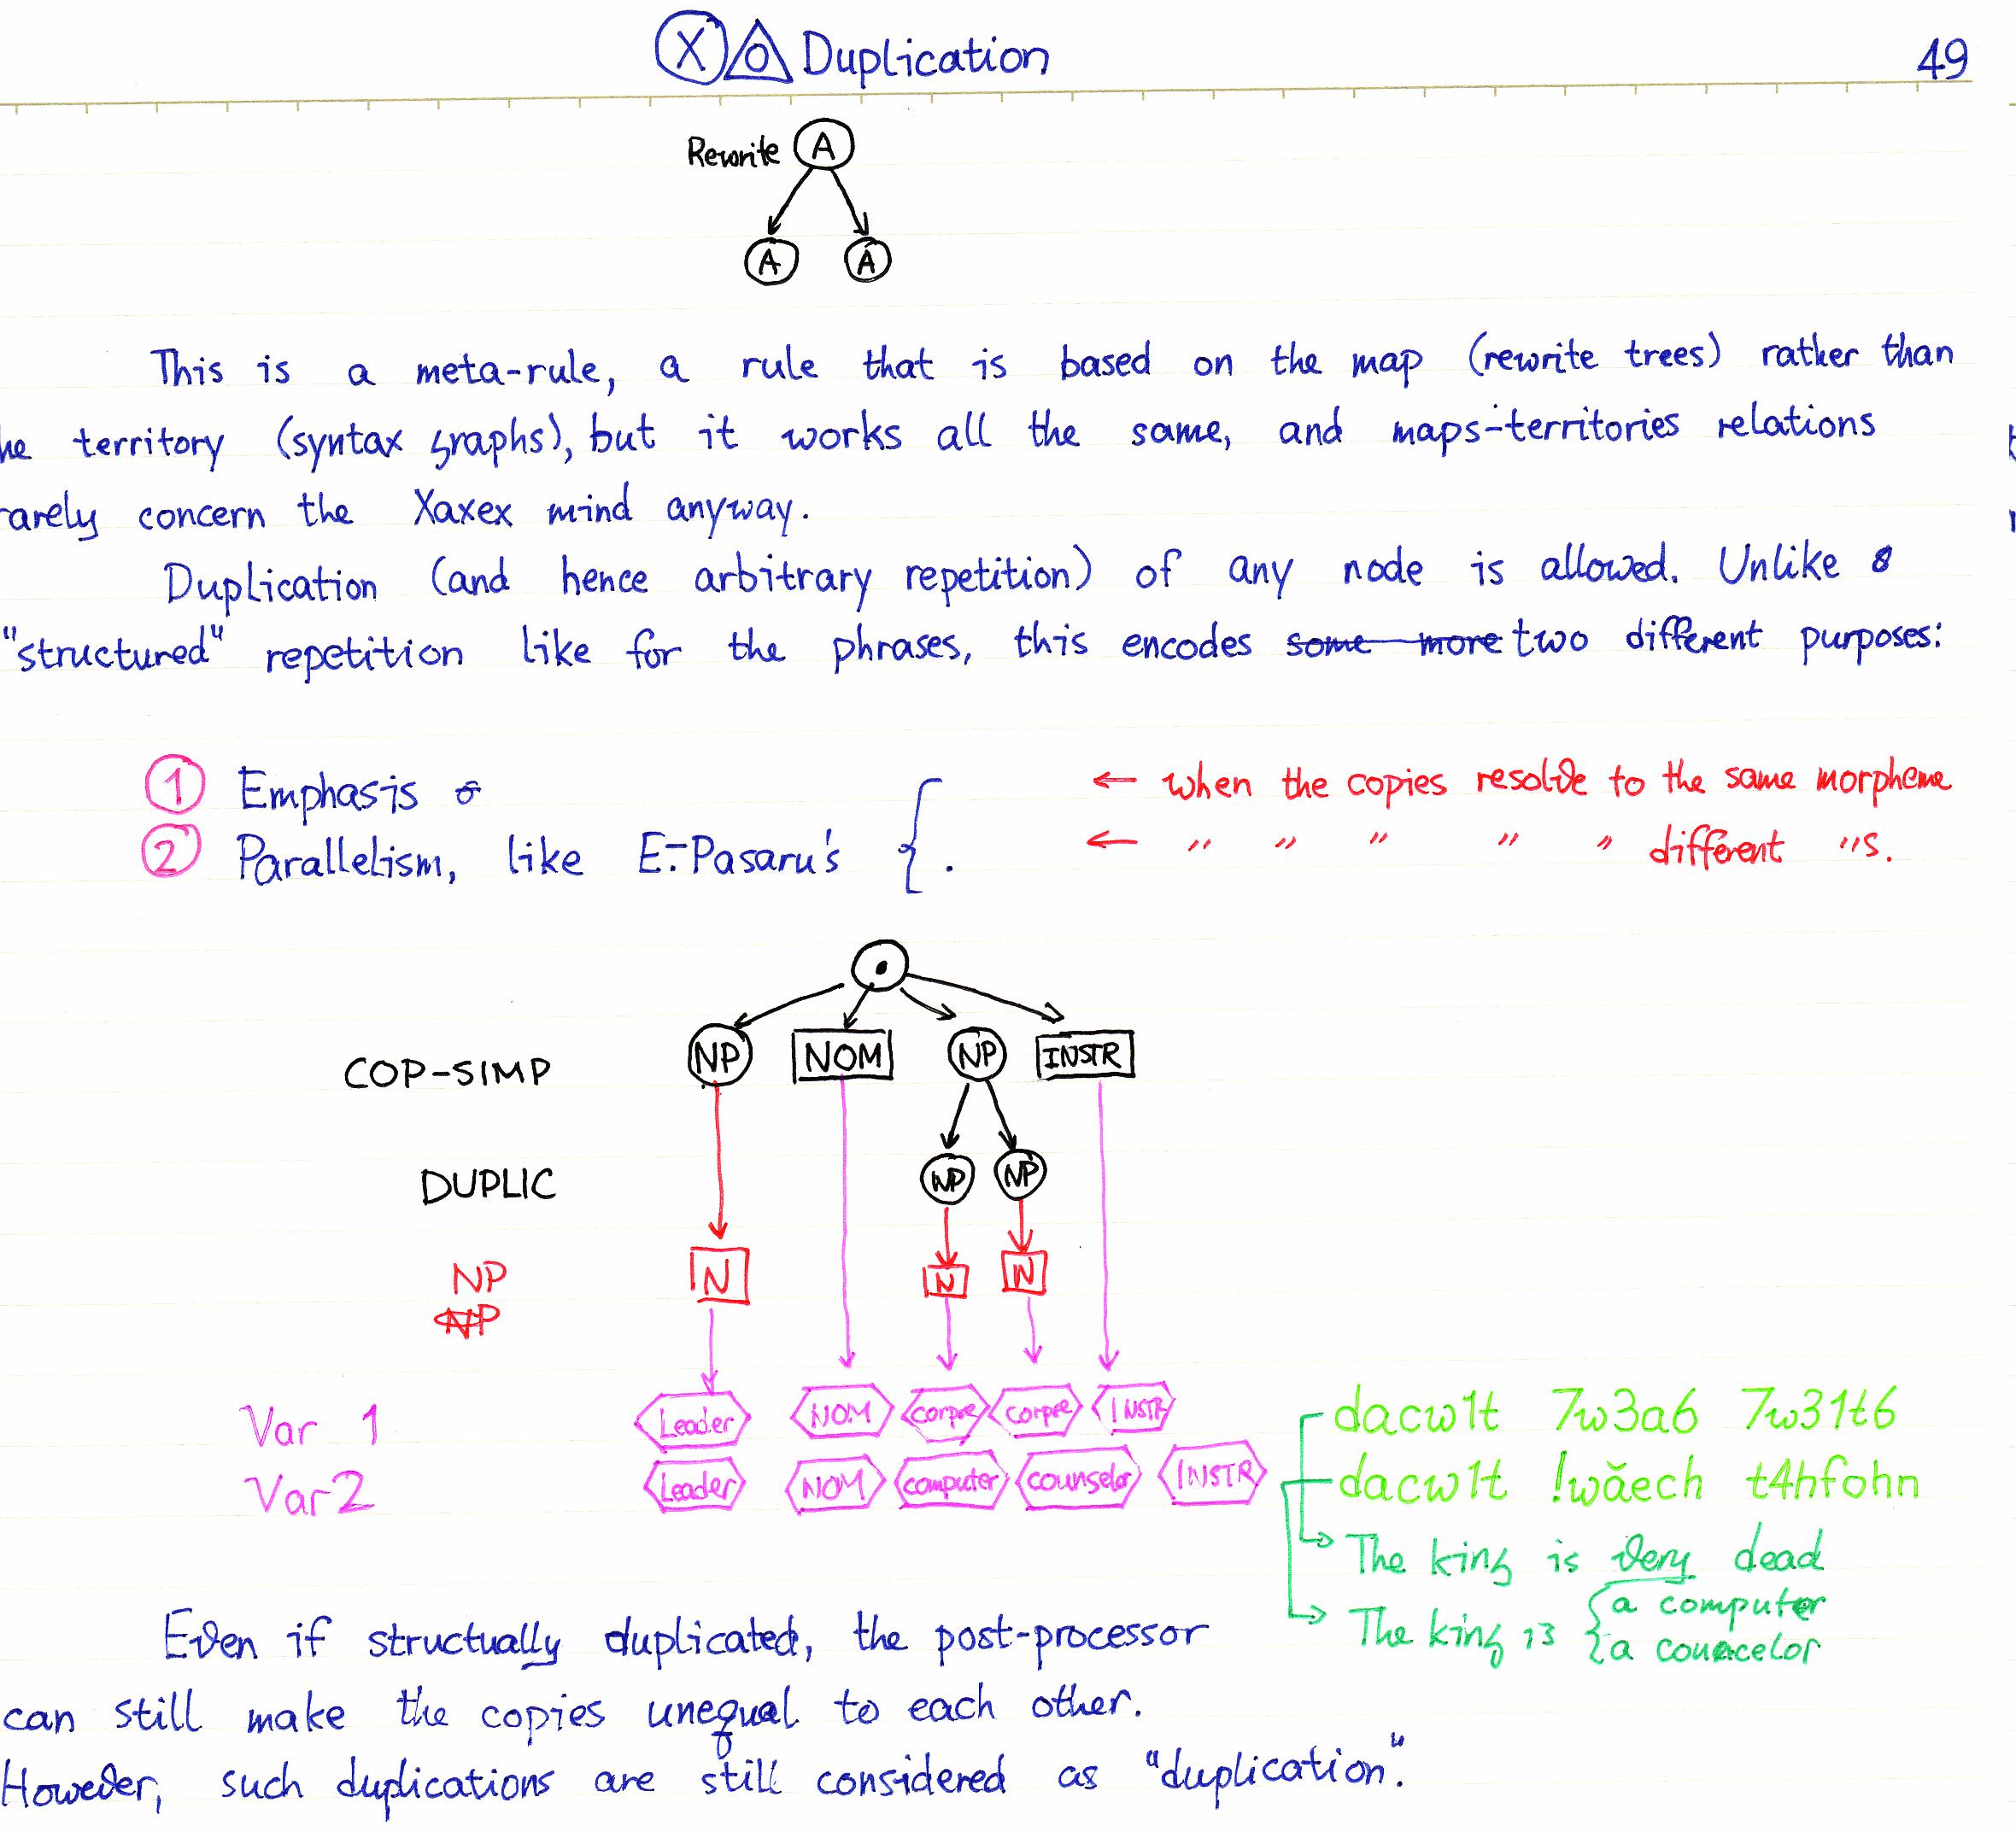 X Duplication 49
Rewrite A
A A
This is a meta-rule, a rule that is based on the map (rewrite trees) rather than
he territory (syntax graphs), but it works all the same, and maps-territories relations
rarely concern the Xaxex mind anyway.
Duplication (and hence arbitrary repetition) of any node is allowed. Unlike
"structured" repetition like for the phrases, this encodes some more two different purposes:
1 Emphasis ← when the copies resolve to the same morpheme
2 Parallelism, like E-Pasaru's { . ← " " " " " different "s.
COP-SIMP NP NOM NP INSTR
DUPLIC NP NP
NP N N N
NP
Var 1 Leader NOM corpse corpse INSTR dacw1t 7w3a6 7w31t6
Var 2 Leader NOM computer counselor INSTR dacw1t !wăech t4hfohn
The king is very dead
The king is { a computer
a councelor
Even if structually duplicated, the post-processor
can still make the copies unequal to each other.
However, such duplications are still considered as "duplication".